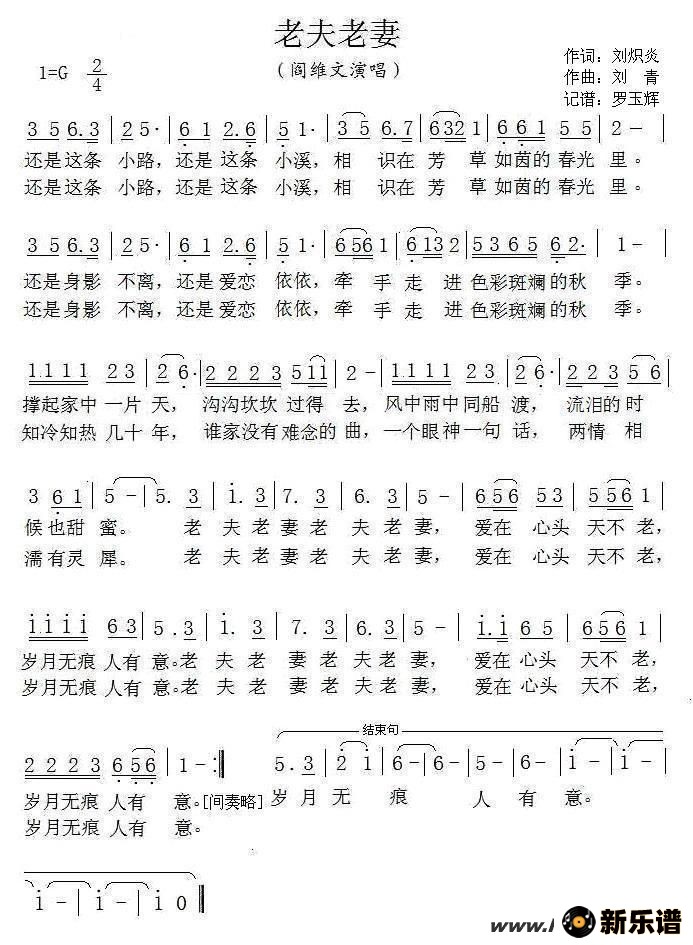 老夫老妻
1=G 2/4
（阎维文演唱）
作词：刘炽炎
作曲：刘 青
记谱：罗玉辉
3 5 6.3 | 2 5· | 6 1 2.6 | 5 1· | 3 5 6.7 | 6 3 2 1 | 6 6 1 5 5 | 2 - |
还是这条 小路，还是 这条 小溪，相 识在 芳 草 如茵的 春光 里。
还是这条 小路，还是 这条 小溪，相 识在 芳 草 如茵的 春光 里。
3 5 6.3 | 2 5· | 6 1 2.6 | 5 1· | 6 5 6 1 | 6 1 3 2 | 5 3 6 5 6 2· | 1 - |
还是身影 不离，还是 爱恋 依依，牵 手 走 进 色彩斑斓的秋 季。
还是身影 不离，还是 爱恋 依依，牵 手 走 进 色彩斑斓的秋 季。
1. 1 1 1 2 3 | 2 6· | 2 2 2 3 5 1 1 | 2 - | 1. 1 1 1 2 3 | 2 6· | 2 2 3 5 6 |
撑起家中 一片 天， 沟沟坎坎 过得 去，风中雨中 同船 渡， 流泪的 时
知冷知热 几十 年， 谁家没有 难念的 曲，一个眼神 一句 话， 两情 相
3 6 1 | 5 - | 5. 3 | 1. 3 | 7. 3 | 6. 3 | 5 - | 6 5 6 5 3 | 5 5 6 5 |
候 也甜 蜜。 老 夫 老 妻 老 夫 老 妻， 爱在 心头 天不 老，
濡 有灵 犀。 老 夫 老 妻 老 夫 老 妻， 爱在 心头 天不 老，
i. i i i 6 3 | 5. 3 | i. 3 | 7. 3 | 6. 3 | 5 - | i. i 6 5 | 6 5 6 5 |
岁月无痕 人有 意。老 夫 老 妻 老 夫 老 妻， 爱在 心头 天不 老，
岁月无痕 人有 意。老 夫 老 妻 老 夫 老 妻， 爱在 心头 天不 老，
结束句
2 2 2 3 6 5 6 | 1 - :| 5. 3 | 2 i | 6 - | 6 - | 5 - | 6 - | i - | i - |
岁月无痕 人有 意。[间奏略] 岁 月 无 痕 人 有 意。
岁月无痕 人有 意。
i - | i - | i 0 ||
www.
新乐谱